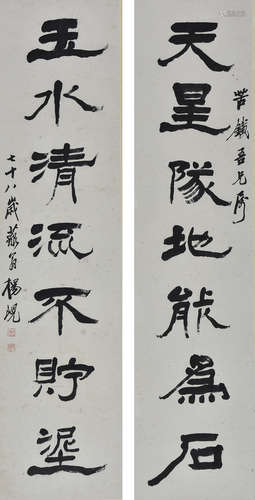 天星隊地能為石
苦鐵吾兄屬
玉水清流不貯泥
七十八歲藐翁楊峴